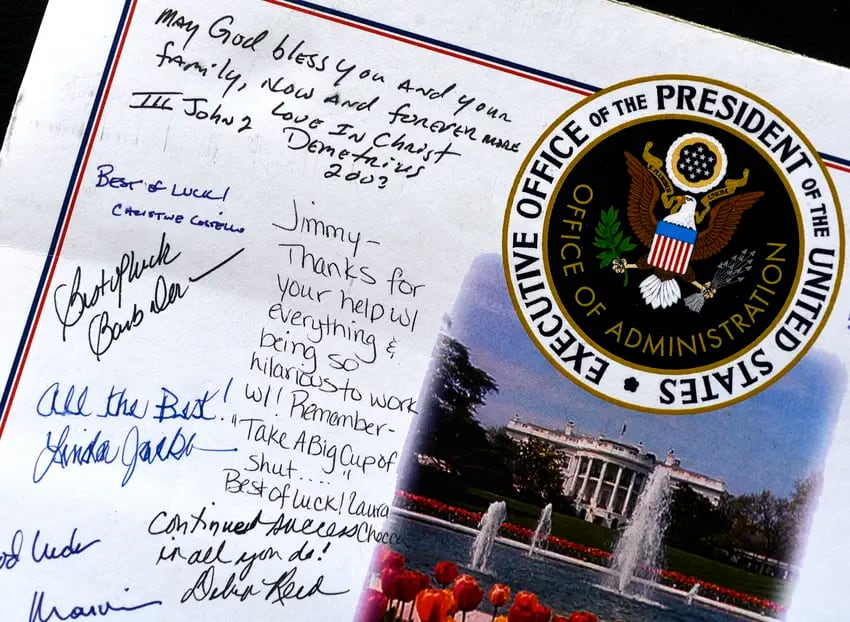 May God bless you and your
family, now and forever more
Love In Christ
III John 2
Demetrius
2003
Best of Luck!
Christine Costello
Best of luck
Barb
Jimmy-
Thanks for
your help w/
everything &
being so
hilarious to work
w/! Remember-
"Take A Big Cup of
shut...."
Best of luck! Laura
All the Best!
Linda
Continued success
in all you do!
Debra Reed
Luck
Marvin
EXECUTIVE OFFICE OF THE PRESIDENT OF THE UNITED STATES
OFFICE OF ADMINISTRATION